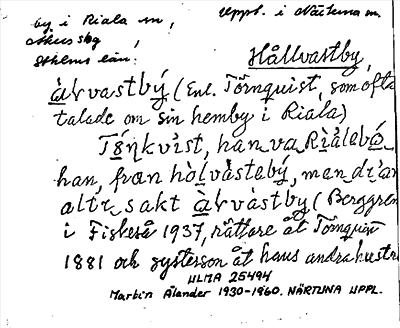 by i Riala sn,
Åkers skg,
Sthlms län.
Uppt. i Närtuna sn.
Hållvastby,
àrvastbý (Enl. Törnquist, som ofta
talade om sin hemby i Riala)
Tö́ŋkvist, han va Rìålebó
han, från hòlvàstebý, men di
altí sakt àrvàstby (Berggren
i Fiskeså 1937, rättare åt Törnquist
1881 och systerson åt hans andra hustru
ULMA 25494
Martin Ålander 1930-1960. NÄRTUNA UPPL.